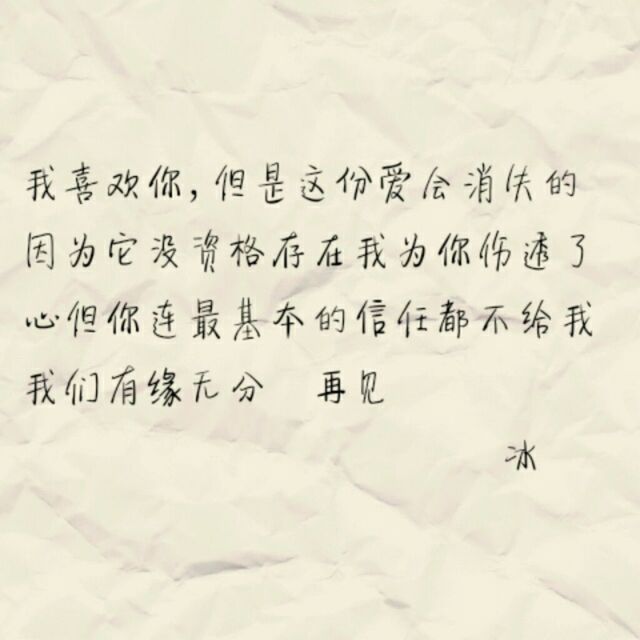 我喜欢你,但是这份爱会消失的
因为它没资格存在我为你伤透了
心但你连最基本的信任都不给我
我们有缘无分 再见
冰